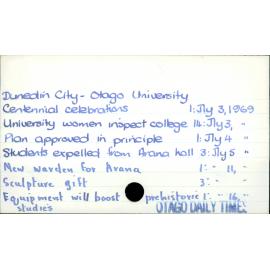 Dunedin City - Otago University
Centennial celebrations 1: Jly 3, 1969
University women inspect college 14: Jly 3, "
Plan approved in principle 1: Jly 4 "
Students expelled from Arana hall 3: Jly 5 "
New warden for Arana 1: " 11, "
Sculpture gift 3: " "
Equipment will boost prehistoric 1: " 16, "
studies
OTAGO DAILY TIMES